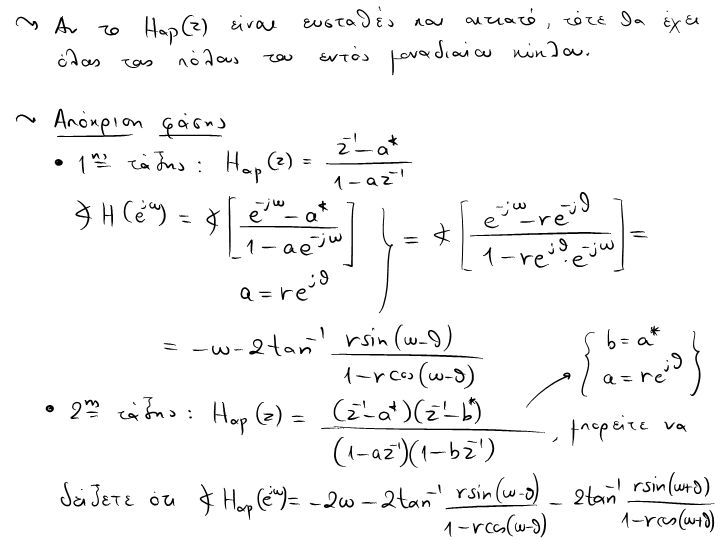 ~> Αν το Hap(z) είναι ευσταθές και αιτιατό, τότε θα έχει
όλους τους πόλους του εντός μοναδιαίου κύκλου.
~> Απόκριση φάσης
• 1ης τάξης: Hap(z) = (z⁻¹ - a*) / (1 - az⁻¹)
∢H(e^{jω}) = ∢[(e^{-jω} - a*) / (1 - ae^{-jω})] } = ∢[(e^{-jω} - re^{-jθ}) / (1 - re^{jθ}·e^{-jω})] =
a = re^{jθ}
= -ω - 2tan⁻¹ (r sin(ω-θ)) / (1 - r cos(ω-θ))
{ b = a*
a = re^{jθ} }
• 2ης τάξης: Hap(z) = ((z⁻¹ - a*)(z⁻¹ - b*)) / ((1 - az⁻¹)(1 - bz⁻¹)), μπορείτε να
δείξετε ότι ∢Hap(e^{jω}) = -2ω - 2tan⁻¹ (r sin(ω-θ)) / (1 - r cos(ω-θ)) - 2tan⁻¹ (r sin(ω+θ)) / (1 - r cos(ω+θ))